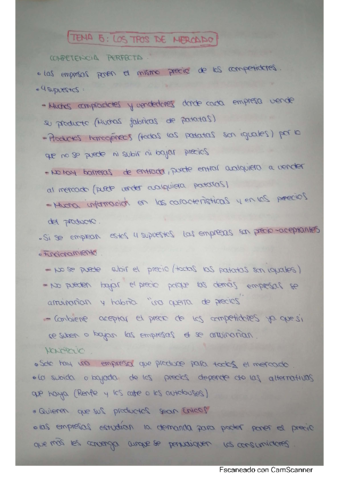 TEMA 8: LOS TIPOS DE MERCADO
COMPETENCIA PERFECTA
• Las empresas ponen el mismo precio de los competidores.
• 4 supuestos:
- Muchos compradores y vendedores donde cada empresa vende
su producto (Muchas fábricas de patatas)
- Productos homogéneos (todas las patatas son iguales) por lo
que no se puede ni subir ni bajar precios
- No hay barreras de entrada, puede entrar cualquiera a vender
al mercado (puede vender cualquiera patatas)
- Mucha información en las características y en los precios
del producto
• Si se cumplen estos 4 supuestos las empresas son precio-aceptantes
• Funcionamiento
- No se puede subir el precio (todas las patatas son iguales)
- No pueden bajar el precio porque las demás empresas se
arruinarían y habría "una guerra de precios"
- Conviene aceptar el precio de los competidores ya que si
se suben o bajan las empresas se arruinarían.
MONOPOLIO
• Solo hay una empresa que produce para todo el mercado
• La subida o bajada de los precios depende de las alternativas
que haya (Renfe y los
• Quieren que sus productos sean
• Las empresas estudian la demanda para poder poner el precio
que más les convenga aunque se perjudiquen los consumidores
Escaneado con CamScanner